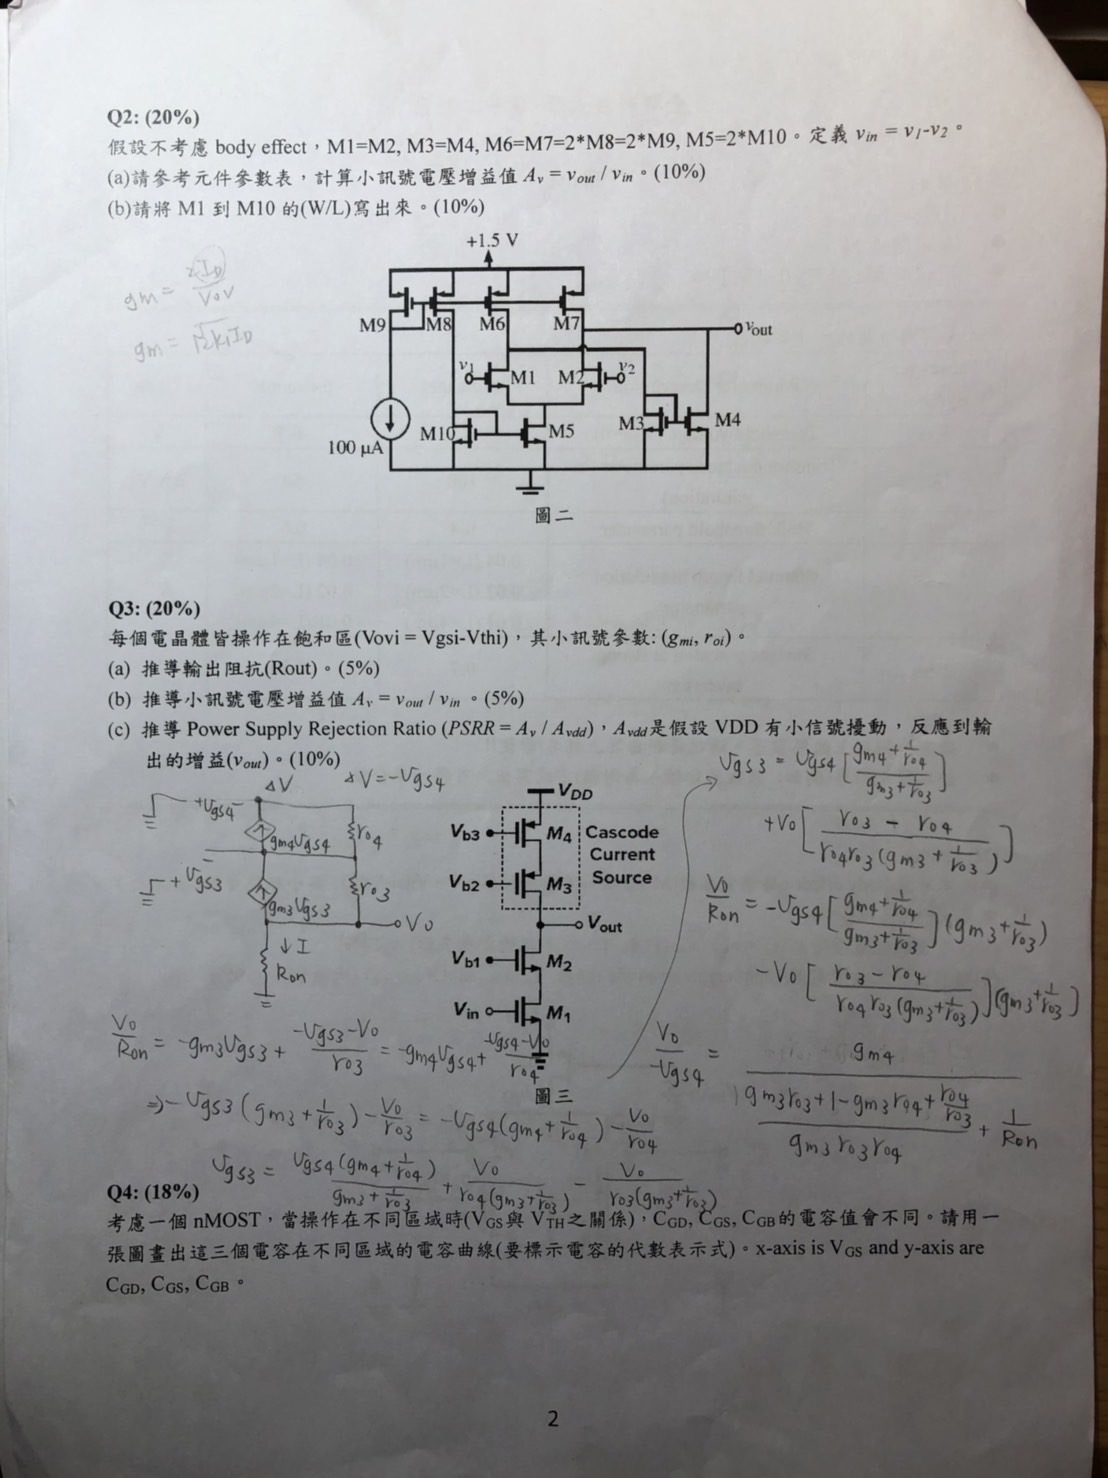 Q2: (20%)
假設不考慮 body effect,M1=M2, M3=M4, M6=M7=2*M8=2*M9, M5=2*M10。定義 vin = v1-v2。
(a)請參考元件參數表,計算小訊號電壓增益值 Av = vout / vin。(10%)
(b)請將 M1 到 M10 的(W/L)寫出來。(10%)
gm = 2ID / Vov
gm =
+1.5 V
M9
M8
M6
M7
vout
v1
M1
M2
v2
100 μA
M10
M5
M3
M4
圖二
Q3: (20%)
每個電晶體皆操作在飽和區(Vovi = Vgsi-Vthi),其小訊號參數: (gmi, roi)。
(a) 推導輸出阻抗(Rout)。(5%)
(b) 推導小訊號電壓增益值 Av = vout / vin 。(5%)
(c) 推導 Power Supply Rejection Ratio (PSRR = Av / Avdd),Avdd是假設 VDD 有小信號擾動,反應到輸
出的增益(vout)。(10%)
ΔV
ΔV=-Vgs4
+Vgs4-
gm4Vgs4
ro4
+Vgs3
-
gm3Vgs3
ro3
Vo
↓I
Ron
VDD
Vb3
M4
Cascode
Current
Source
Vb2
M3
Vout
Vb1
M2
Vin
M1
圖三
Vgs3 = Vgs4 [ (gm4+1/ro4) / (gm3+1/ro3) ]
+Vo [ (ro3 - ro4) / (ro4ro3(gm3+1/ro3)) ]
Vo/Ron = -Vgs4 [ (gm4+1/ro4) / (gm3+1/ro3) ] (gm3+1/ro3)
-Vo [ (ro3-ro4) / (ro4ro3(gm3+1/ro3)) ] (gm3+1/ro3)
Vo/Ron = -gm3Vgs3 + (-Vgs3-Vo)/ro3 = -gm4Vgs4 + (-Vgs4-Vo)/ro4
⇒ -Vgs3 (gm3+1/ro3) - Vo/ro3 = -Vgs4(gm4+1/ro4) - Vo/ro4
Vo/-Vgs4 = gm4 / ( (gm3ro3+1-gm3ro4+ro4/ro3) / (gm3ro3ro4) + 1/Ron )
Vgs3 = Vgs4(gm4+1/ro4) / (gm3+1/ro3) + Vo / (ro4(gm3+1/ro3)) - Vo / (ro3(gm3+1/ro3))
Q4: (18%)
考慮一個 nMOST,當操作在不同區域時(VGS與 VTH之關係),CGD, CGS, CGB的電容值會不同。請用一
張圖畫出這三個電容在不同區域的電容曲線(要標示電容的代數表示式)。x-axis is VGS and y-axis are
CGD, CGS, CGB。
2